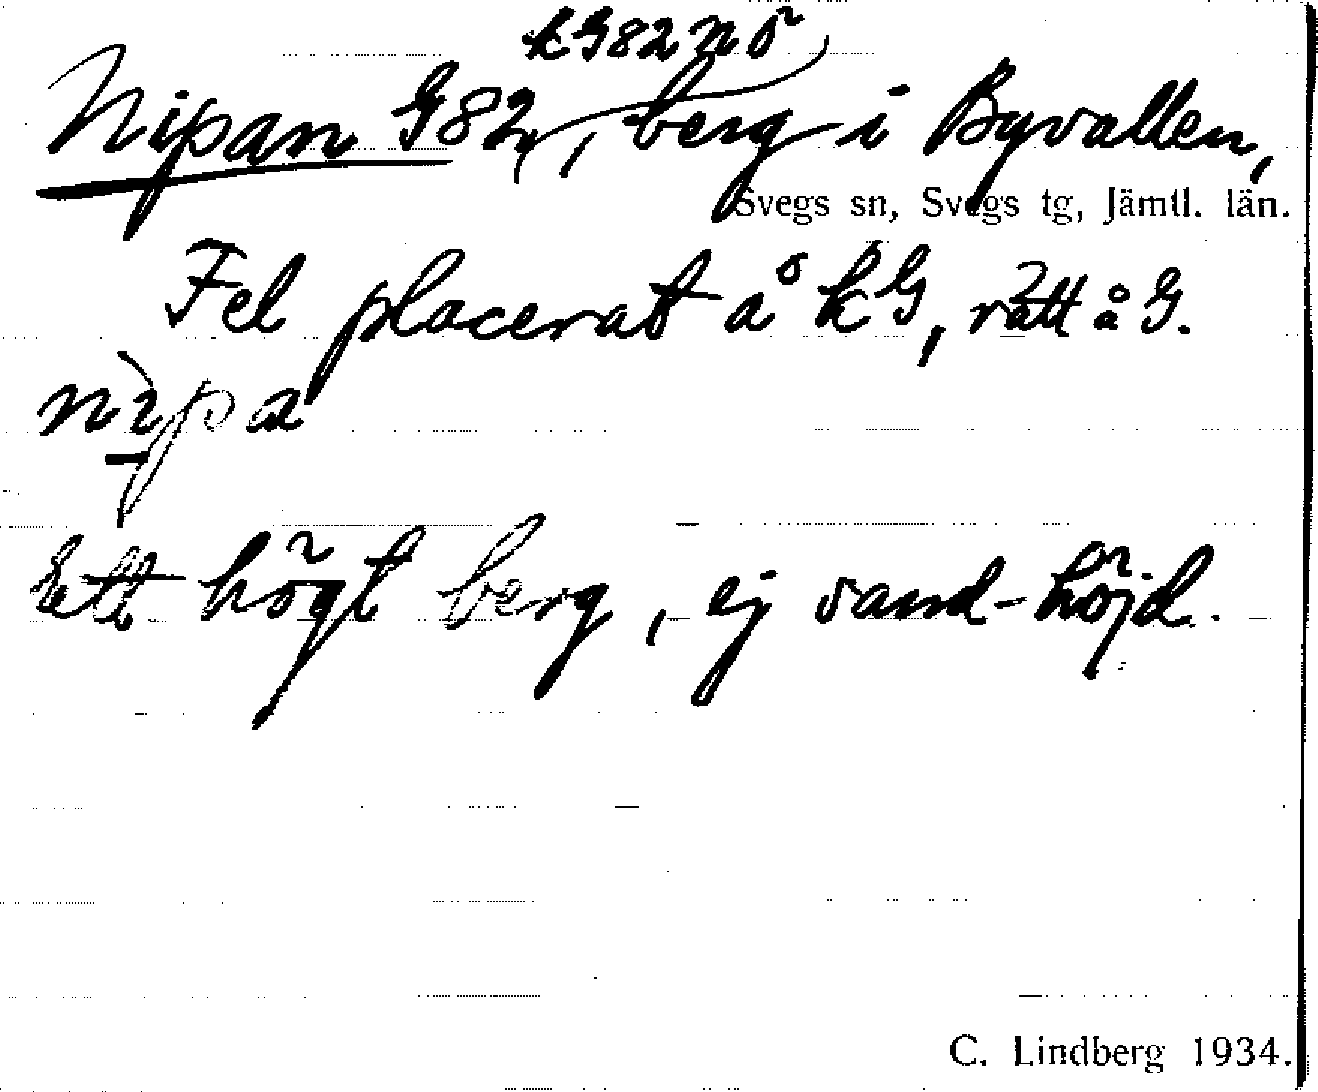 kG82nö
Nipan G82, berg i Byvallen,
Svegs sn, Svegs tg, Jämtl. län.
Fel placerat å kG, rätt å G.
nìpa
Ett högt berg, ej sand-höjd.
C. Lindberg 1934.